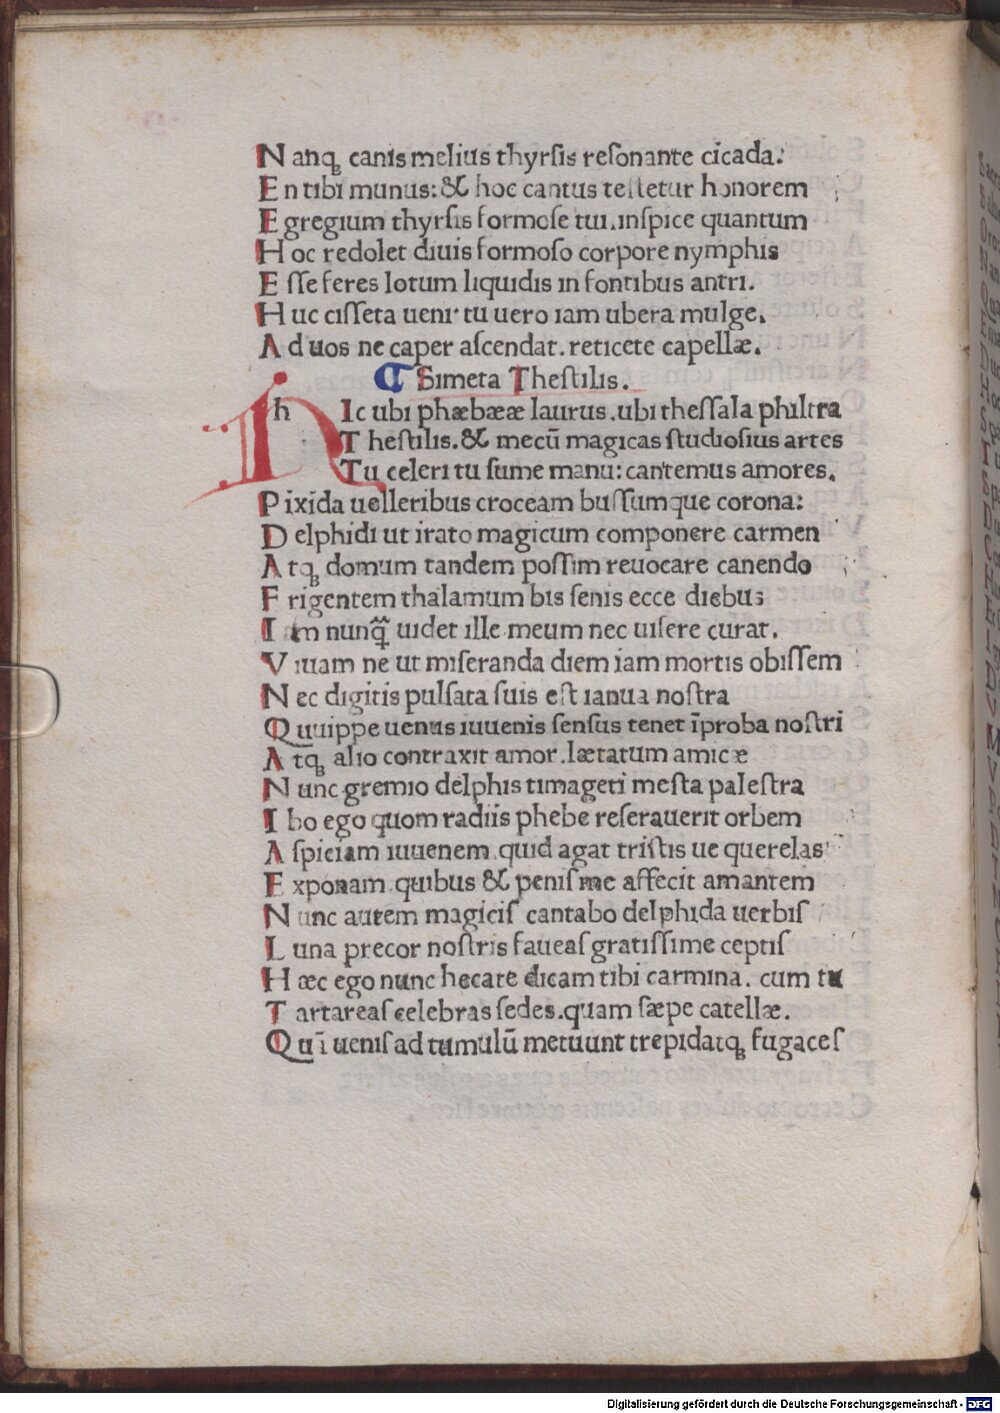 N anqꝫ canis melius thyrsis resonante cicada:
E n tibi munus: & hoc cantus testetur honorem
E gregium thyrsis formose tui. inspice quantum
H oc redolet diuis formoso corpore nymphis
E sse feres lotum liquidis in fontibus antri.
H uc cisseta ueni· tu uero iam ubera mulge.
A d uos ne caper ascendat. reticete capellæ.
¶ Simeta Thestilis.
h Ic ubi phæbææ laurus. ubi thessala philtra
T hestilis. & mecū magicas studiosius artes
Tu celeri tu sume manu: cantemus amores.
P ixida uelleribus croceam bussumque corona:
D elphidi ut irato magicum componere carmen
A tqꝫ domum tandem possim reuocare canendo
F rigentem thalamum bis senis ecce diebus
I am nunqꝫ̃ uidet ille meum nec uisere curat.
V iuam ne ut miseranda diem iam mortis obissem
N ec digitis pulsata suis est ianua nostra
Quuippe uenus iuuenis sensus tenet īproba nostri
A tqꝫ alio contraxit amor. lætatum amicæ
N unc gremio delphis timageti mesta palestra
I bo ego quom radiis phebe reserauerit orbem
A spiciam iuuenem quid agat tristis ue querelas
E xponam quibus & penis me affecit amantem
N unc autem magicis cantabo delphida uerbis
L una precor nostris faueas gratissime ceptis
H æc ego nunc hecate dicam tibi carmina. cum tu
T artareas celebras sedes. quam sæpe catellæ.
Quī uenis ad tumulū metuunt trepidatqꝫ fugaces
Digitalisierung gefördert durch die Deutsche Forschungsgemeinschaft - DFG